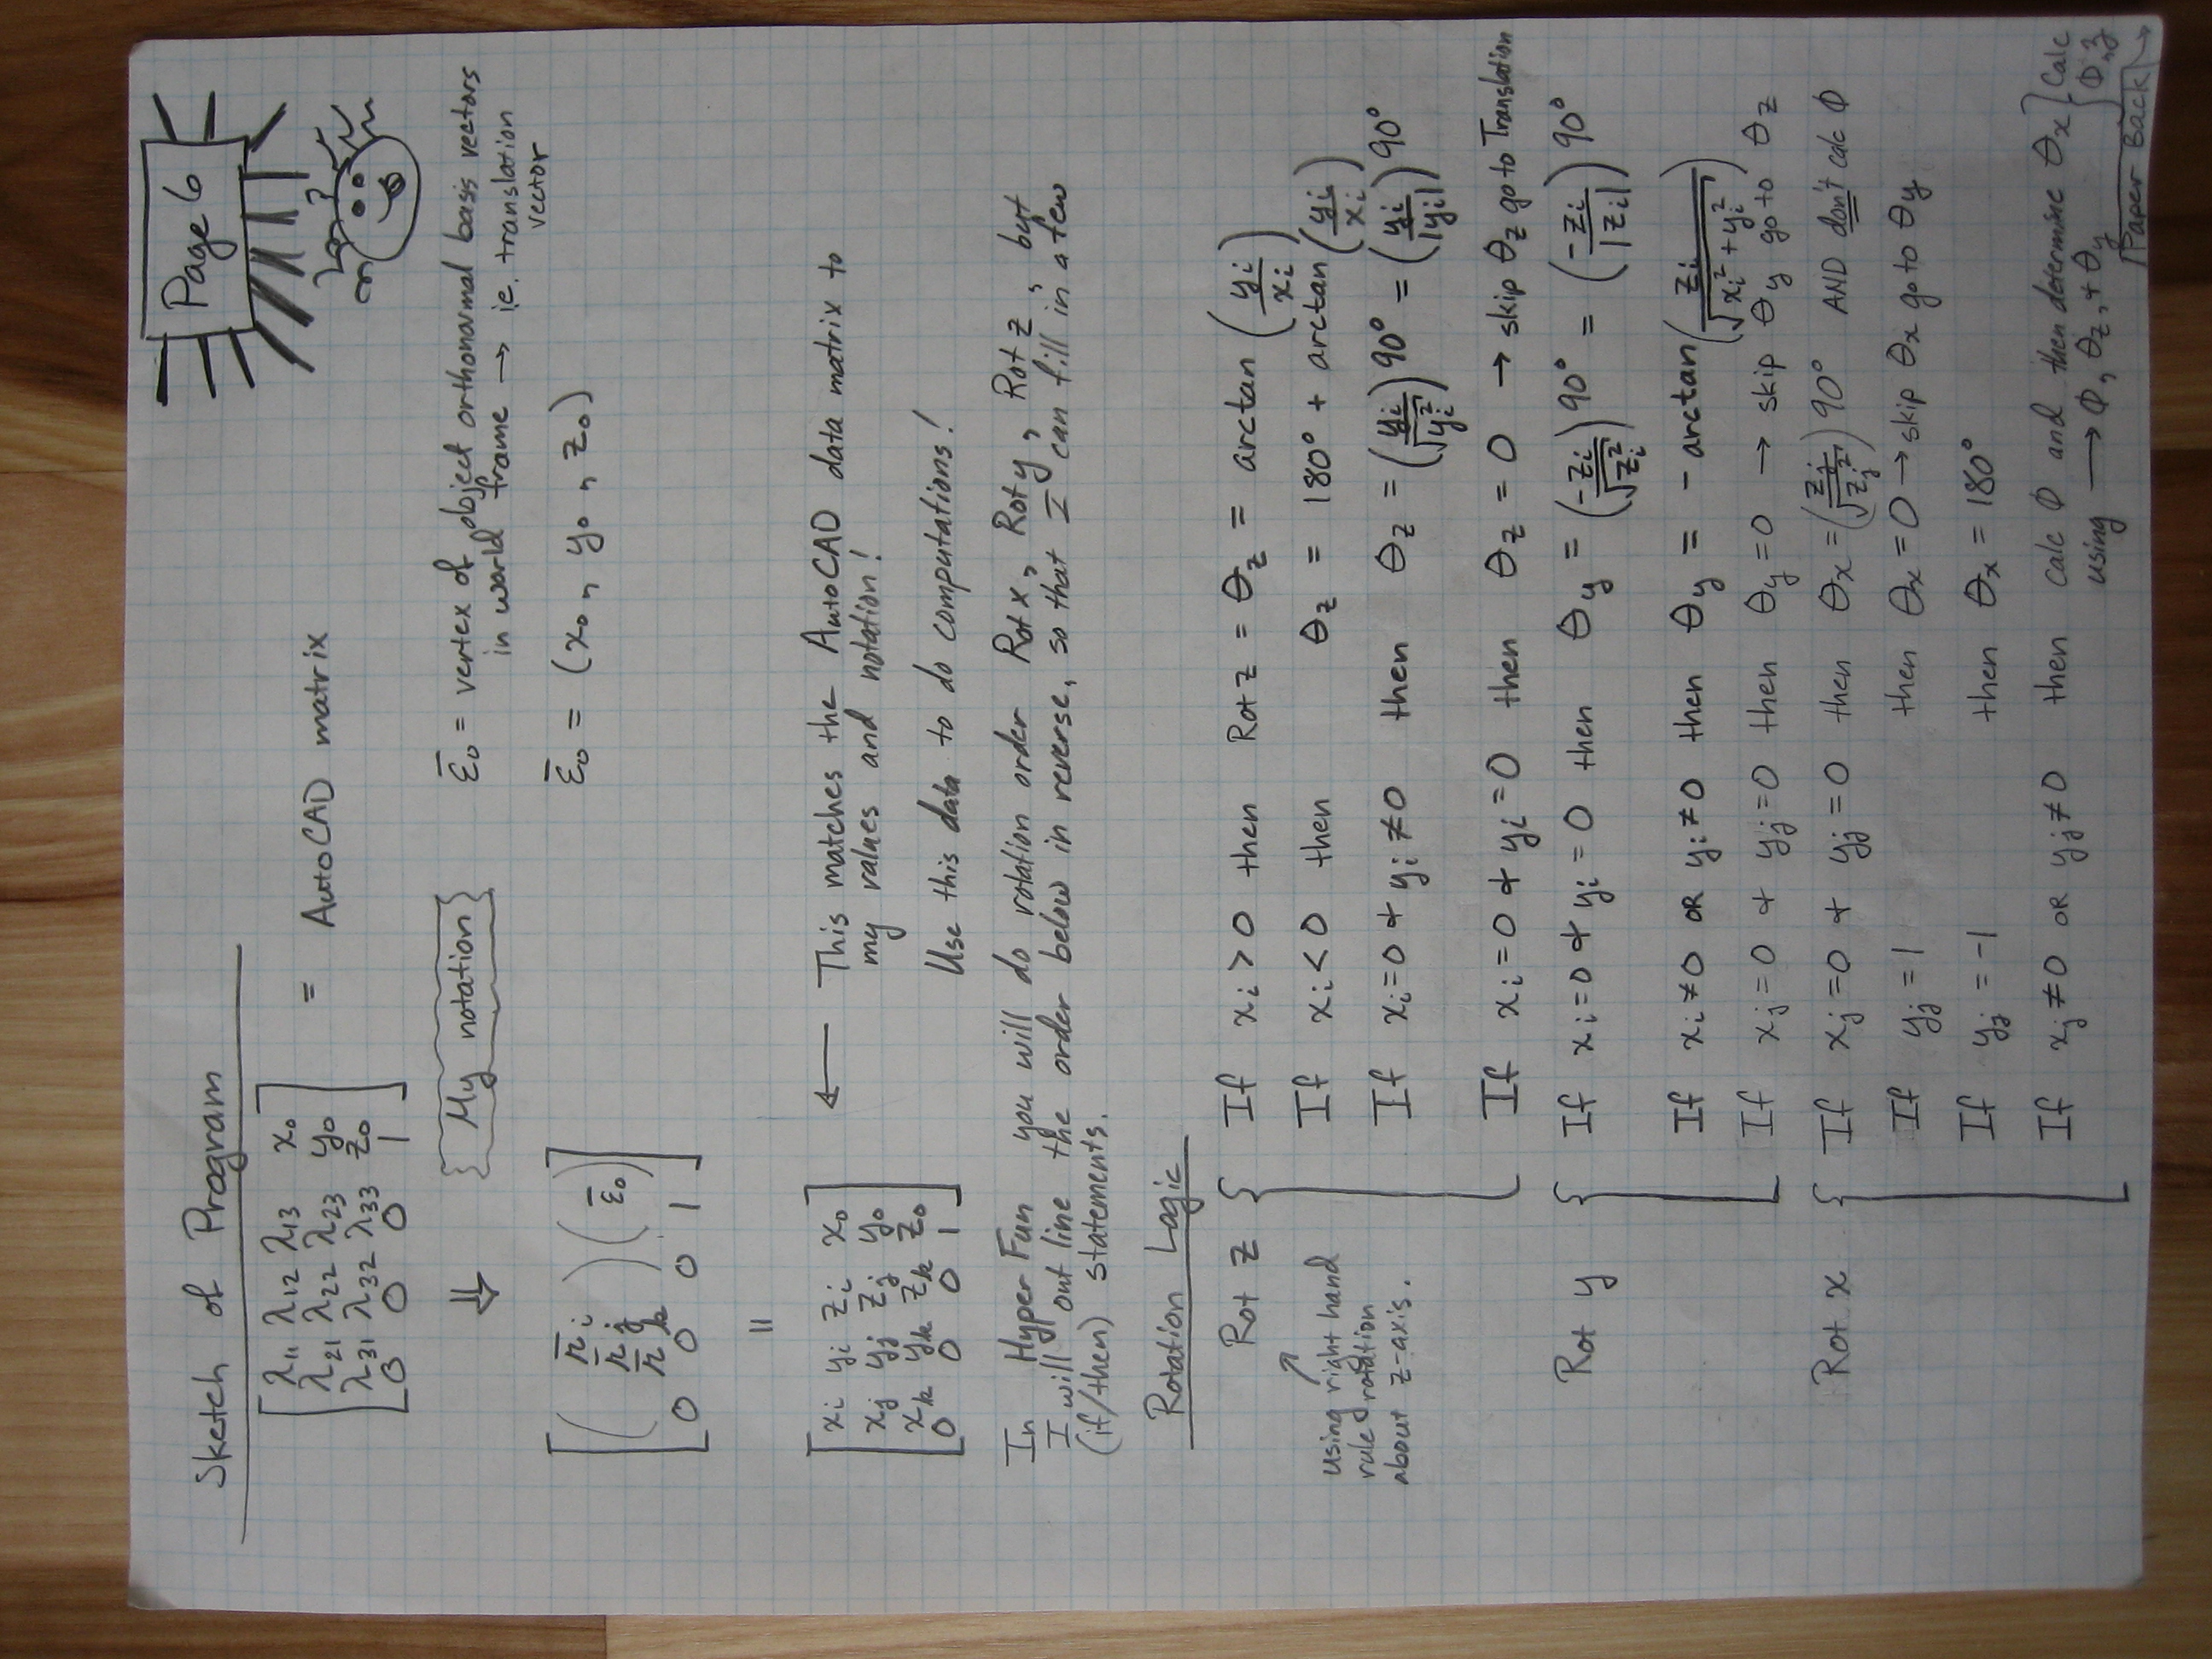 Page 6
Sketch of Program
[λ11 λ12 λ13 x0
λ21 λ22 λ23 y0
λ31 λ32 λ33 z0
0 0 0 1] = AutoCAD matrix
⇓ {My notation}
ε̄0 = vertex of object orthonormal basis vectors
in world frame → ie. translation
vector
ε̄0 = (x0, y0, z0)
[(r̄i
r̄j
r̄k) (ε̄0)
0 0 0 1]
=
[xi yi zi x0
xj yj zj y0
xk yk zk z0
0 0 0 1]
← This matches the AutoCAD data matrix to
my values and notation!
Use this data to do computations!
In HyperFun you will do rotation order Rotx, Roty, Rotz, but
I will out line the order below in reverse, so that I can fill in a few
(if/then) statements.
Rotation Logic
Rot z { If xi > 0 then Rot z = θz = arctan (yi/xi)
If xi < 0 then θz = 180° + arctan (yi/xi)
using right hand
rule rotation
about z-axis.
If xi = 0 + yi ≠ 0 then θz = (yi/√yi²) 90° = (yi/|yi|) 90°
If xi = 0 + yi = 0 then θz = 0 → skip θz go to Translation
Rot y { If xi = 0 + yi = 0 then θy = (-zi/√zi²) 90° = (-zi/|zi|) 90°
If xi ≠ 0 OR yi ≠ 0 then θy = - arctan (zi/√xi² + yi²)
If xj = 0 + yj = 0 then θy = 0 → skip θy go to θz
Rot x { If xj = 0 + yj = 0 then θx = (zj/√zj²) 90° AND don't calc Φ
If yj = 1 then θx = 0 → skip θx go to θy
If yj = -1 then θx = 180°
If xj ≠ 0 OR yj ≠ 0 then calc Φ and then determine θx } Calc
using → Φ, θz, + θy
Paper Back →